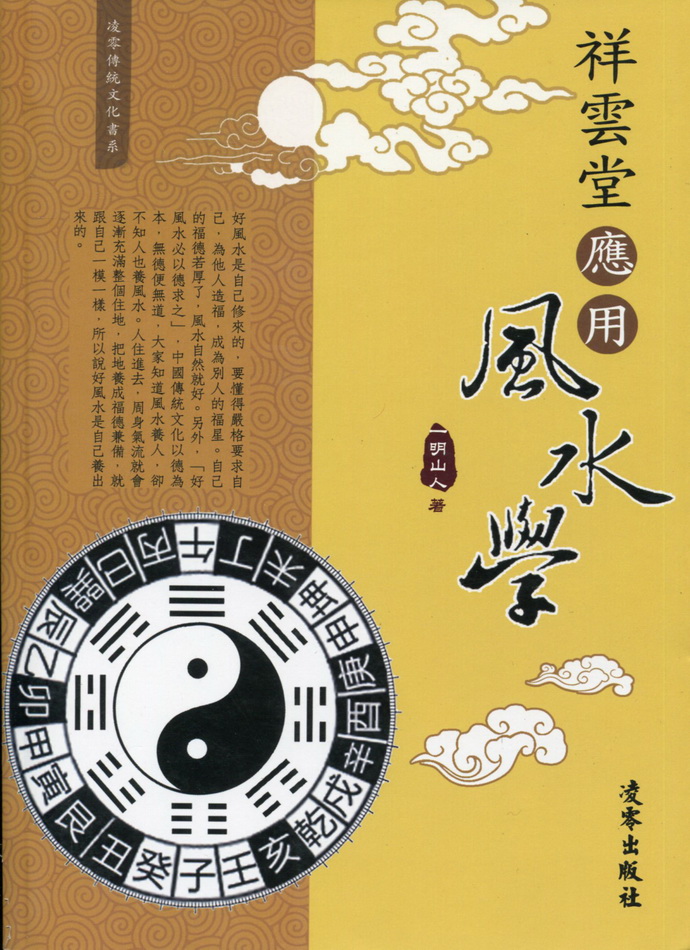 祥雲堂應用
風水學
一明山人著
凌零出版社
凌零傳統文化書系
好風水是自己修來的，要懂得嚴格要求自
己，為他人造福，成為別人的福星。自己
的福德若厚了，風水自然就好。另外，「好
風水必以德求之」，中國傳統文化以德為
本，無德便無道，大家知道風水養人，卻
不知人也養風水。人住進去，周身氣流就會
逐漸充滿整個住地，把地養成福德兼備，就
跟自己一模一樣，所以說好風水是自己養出
來的。
午丁未坤申庚酉辛戌乾亥壬子癸丑艮寅甲卯乙辰巽巳丙